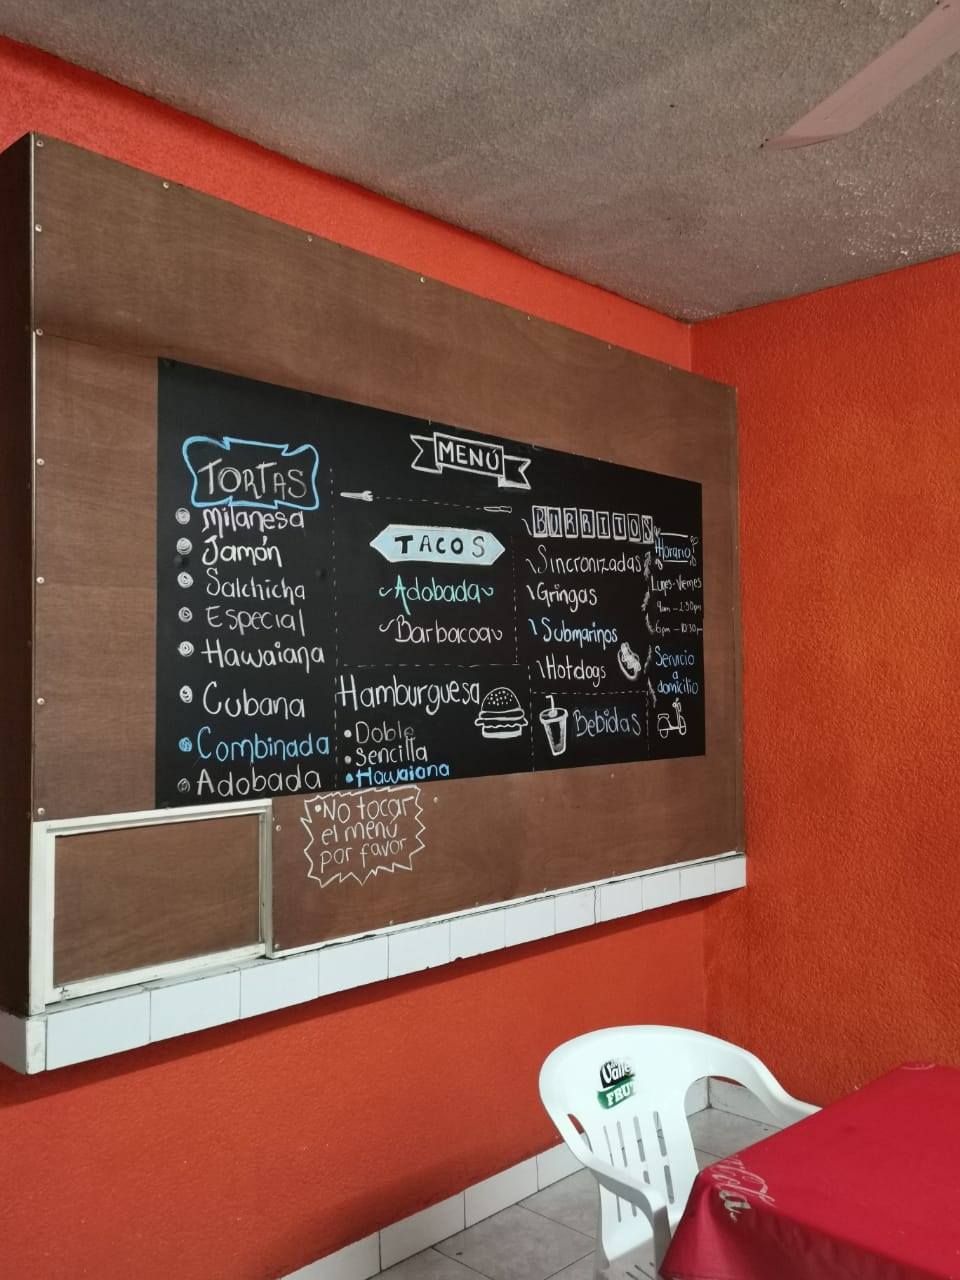 MENÚ
TORTAS
Milanesa
Jamón
Salchicha
Especial
Hawaiana
Cubana
Combinada
Adobada
TACOS
Adobada
Barbacoa
Hamburguesa
Doble
Sencilla
Hawaiana
BURRITOS
Sincronizadas
Gringas
Submarinos
Hotdogs
Bebidas
Horario
Lunes-Viernes
9am - 1:30pm
6pm - 10:30pm
Servicio
a
domicilio
No tocar
el menú
por favor
Valle
FRUT